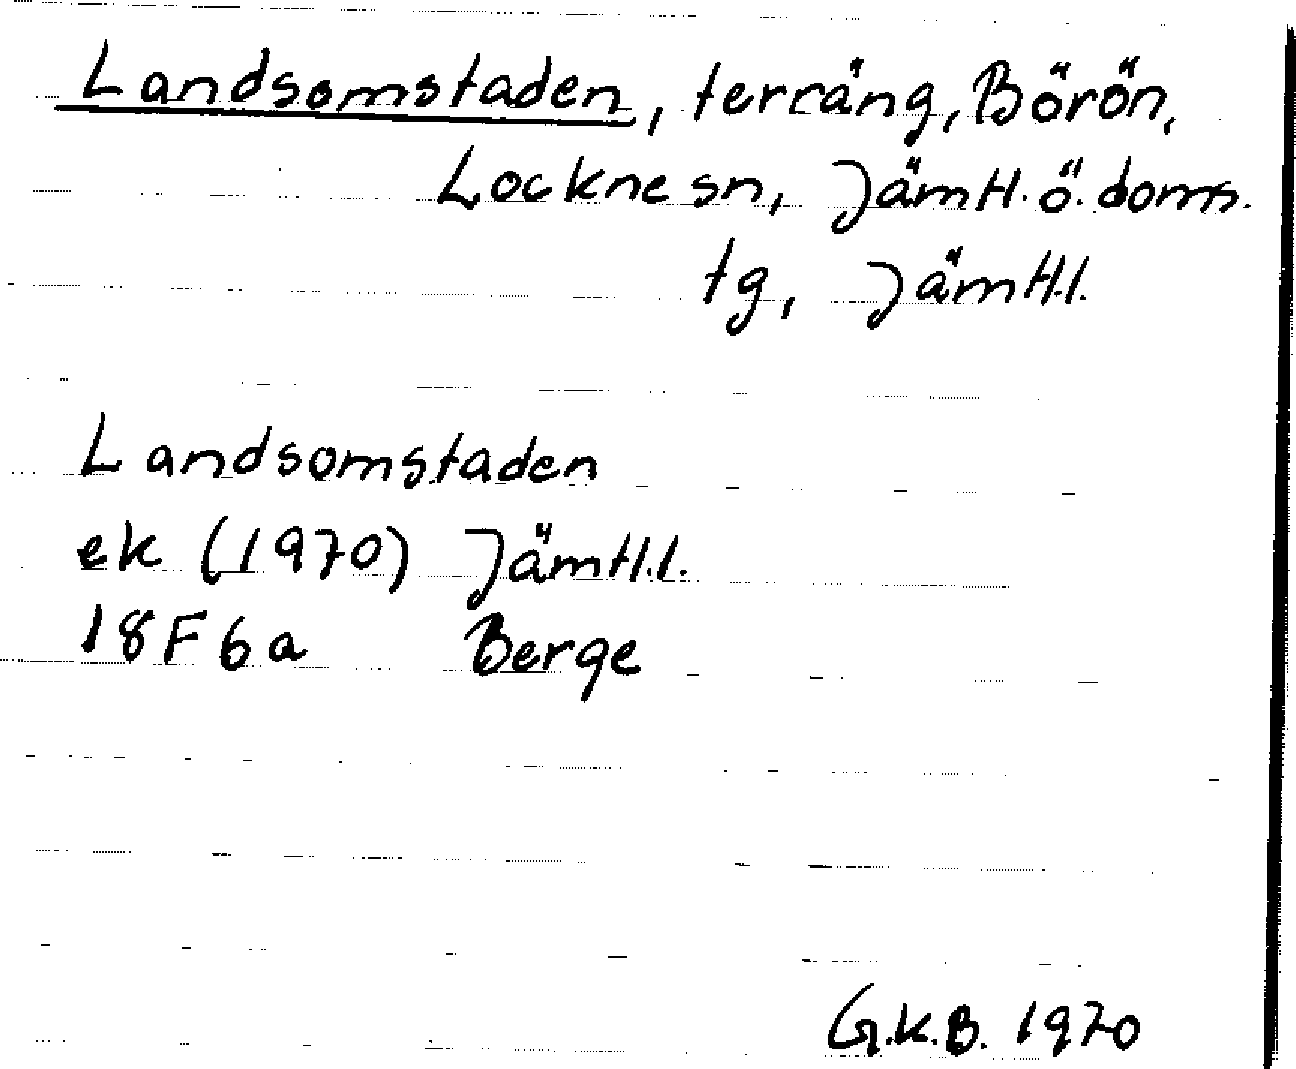 Landsomstaden, terräng, Börön,
Lockne sn, Jämtl. ö. doms.
tg, Jämtl.l.
Landsomstaden
ek (1970) Jämtl.l.
18F6a Berge
G.K.B. 1970